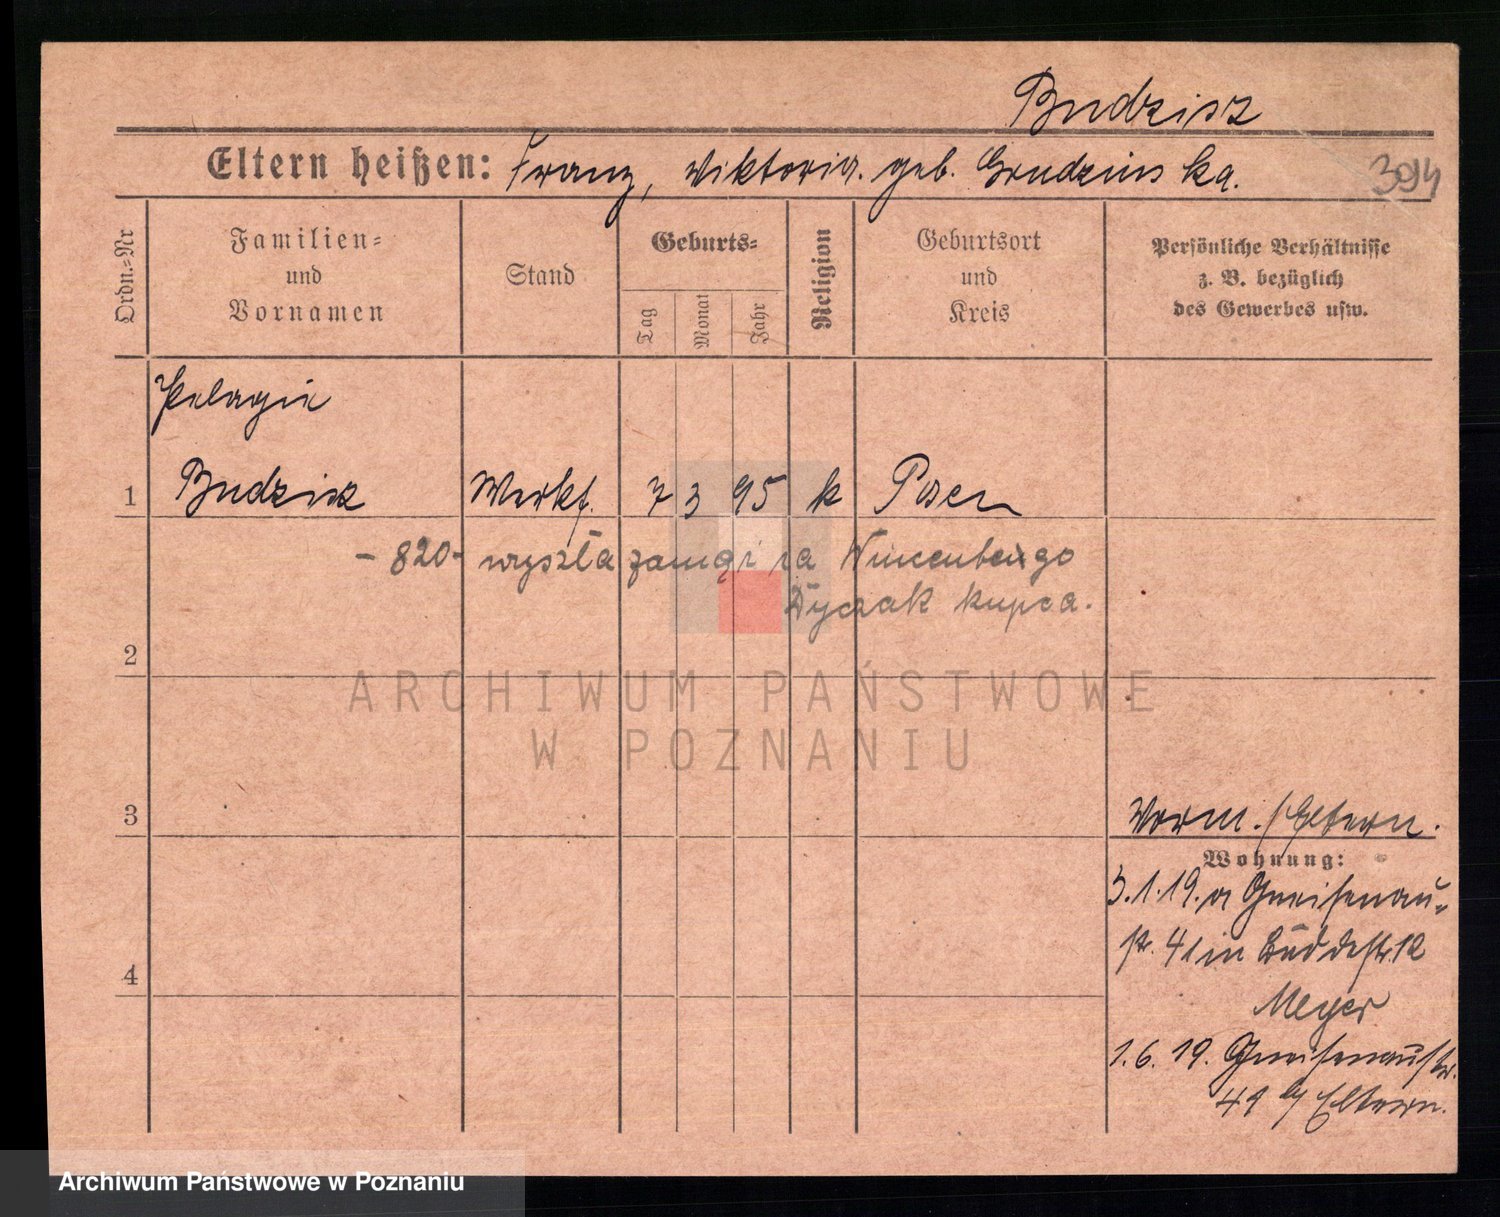 Budzisz
Eltern heißen: Franz, Viktoria. geb. Grudzinska.
3094
Ordn.=Nr
Familien=
und
Vornamen
Stand
Geburts=
Tag
Monat
Jahr
Religion
Geburtsort
und
Kreis
Persönliche Verhältnisse
z. B. bezüglich
des Gewerbes usw.
Pelagie
1 Budzisz Werkf. 7 3 95 k Posen
- 820 - wyszła zamąż za Wincentego
Dyczak kupca.
2
ARCHIWUM PAŃSTWOWE
W POZNANIU
3
Vorm. / Eltern.
Wohnung:
3.1.19. a Gneisenau=
str. 41 in Buddestr. 12
4
Meyer
1.6.19. Gneisenaustr.
41 b/ Eltern.
Archiwum Państwowe w Poznaniu